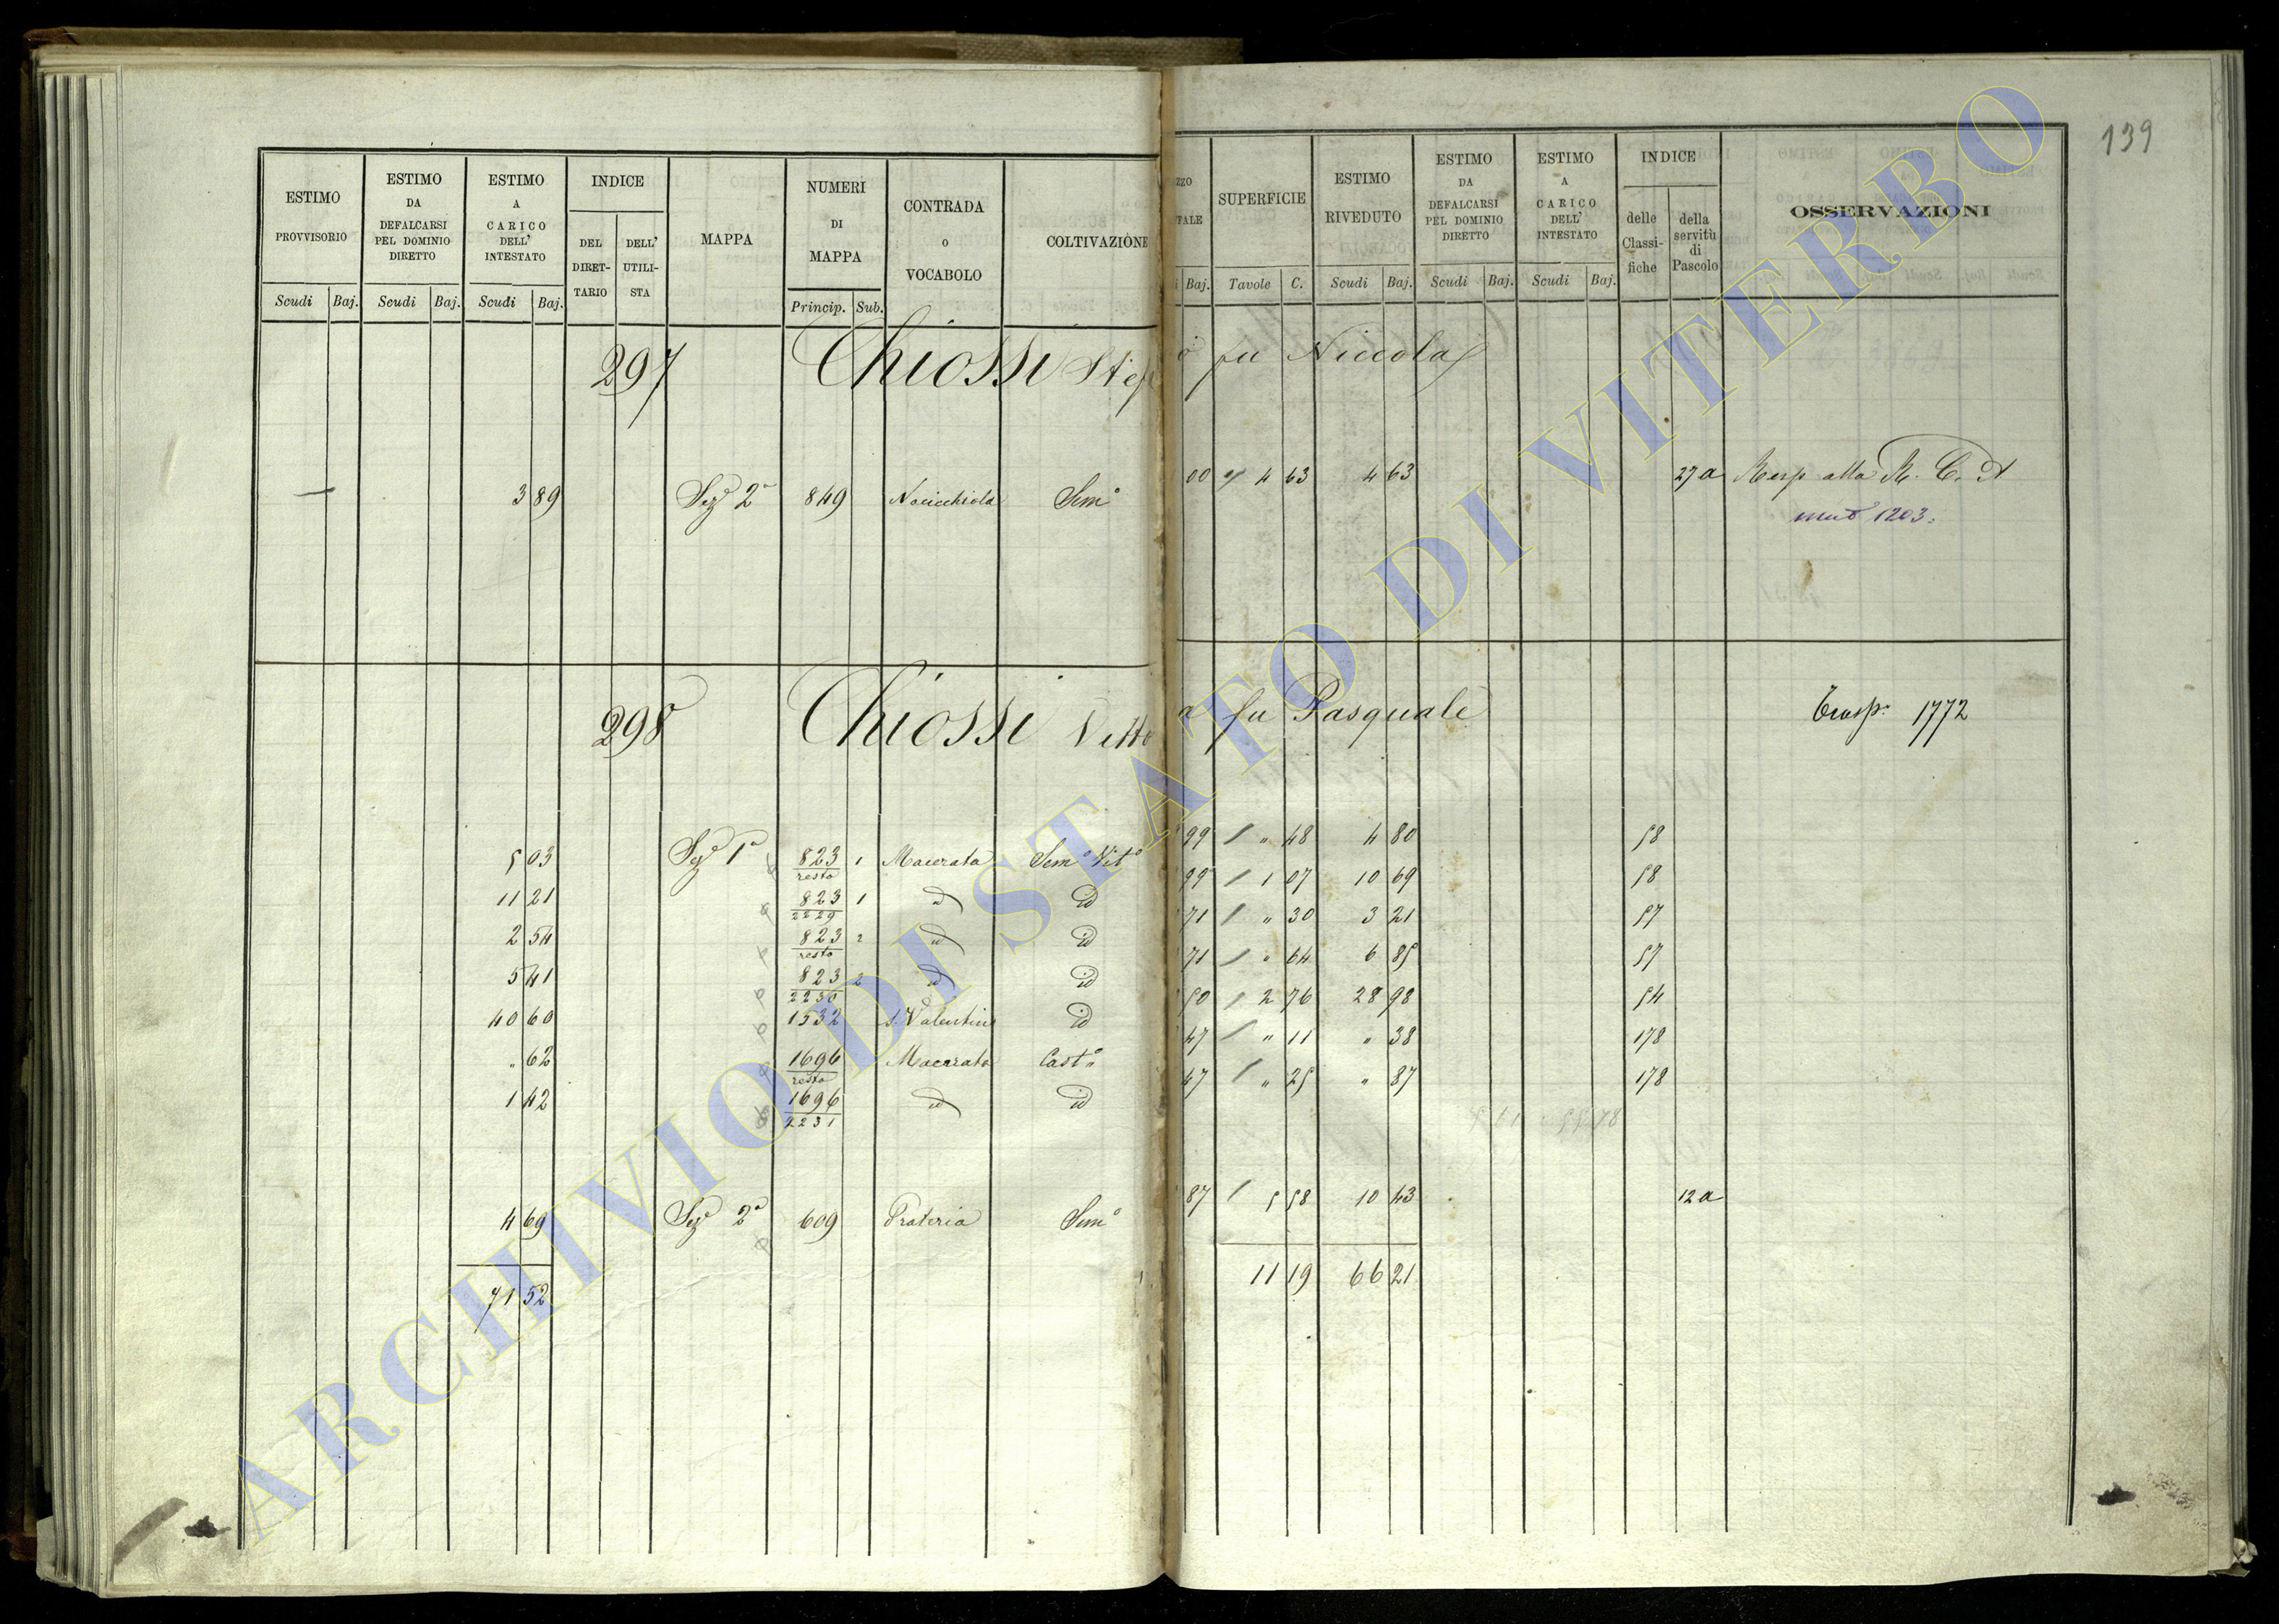 139
ESTIMO PROVVISORIO
ESTIMO DA DEFALCARSI PEL DOMINIO DIRETTO
ESTIMO A CARICO DELL' INTESTATO
INDICE
DEL DIRET-TARIO
DELL' UTILI-STA
MAPPA
NUMERI DI MAPPA
CONTRADA o VOCABOLO
COLTIVAZIONE
Scudi Baj. Scudi Baj. Scudi Baj. Princip. Sub.
SUPERFICIE
ESTIMO RIVEDUTO
ESTIMO DA DEFALCARSI PEL DOMINIO DIRETTO
ESTIMO A CARICO DELL' INTESTATO
INDICE
delle Classi-fiche
della servitù di Pascolo
OSSERVAZIONI
Baj. Tavole C. Scudi Baj. Scudi Baj. Scudi Baj.
297 Chiossi Stef o fu Niccola
3 89 Seze 2a 849 Nocicchiola Sem° 00 4 63 4 63 27a Resp alla R. C. A
1203
298 Chiossi Vitto a fu Pasquale Trasp. 1772
5 03 Seze 1a 823 resto 1 Macerata Sem° Vit° 99 " 48 4 80 58
11 21 823 2229 1 id id 99 1 07 10 69 58
2 54 823 resto 2 id id 71 " 30 3 21 57
5 41 823 2230 2 id id 71 " 64 6 85 57
40 60 1532 S. Valentino id 50 2 76 28 98 54
" 62 1696 resto Macerata Cast° 47 " 11 " 38 178
1 42 1696 2231 id id 47 " 25 " 87 178
4 69 Sezе 2a 609 Prateria Sem° 87 5 58 10 43 12a
71 52 11 19 66 21
ARCHIVIO DI STATO DI VITERBO